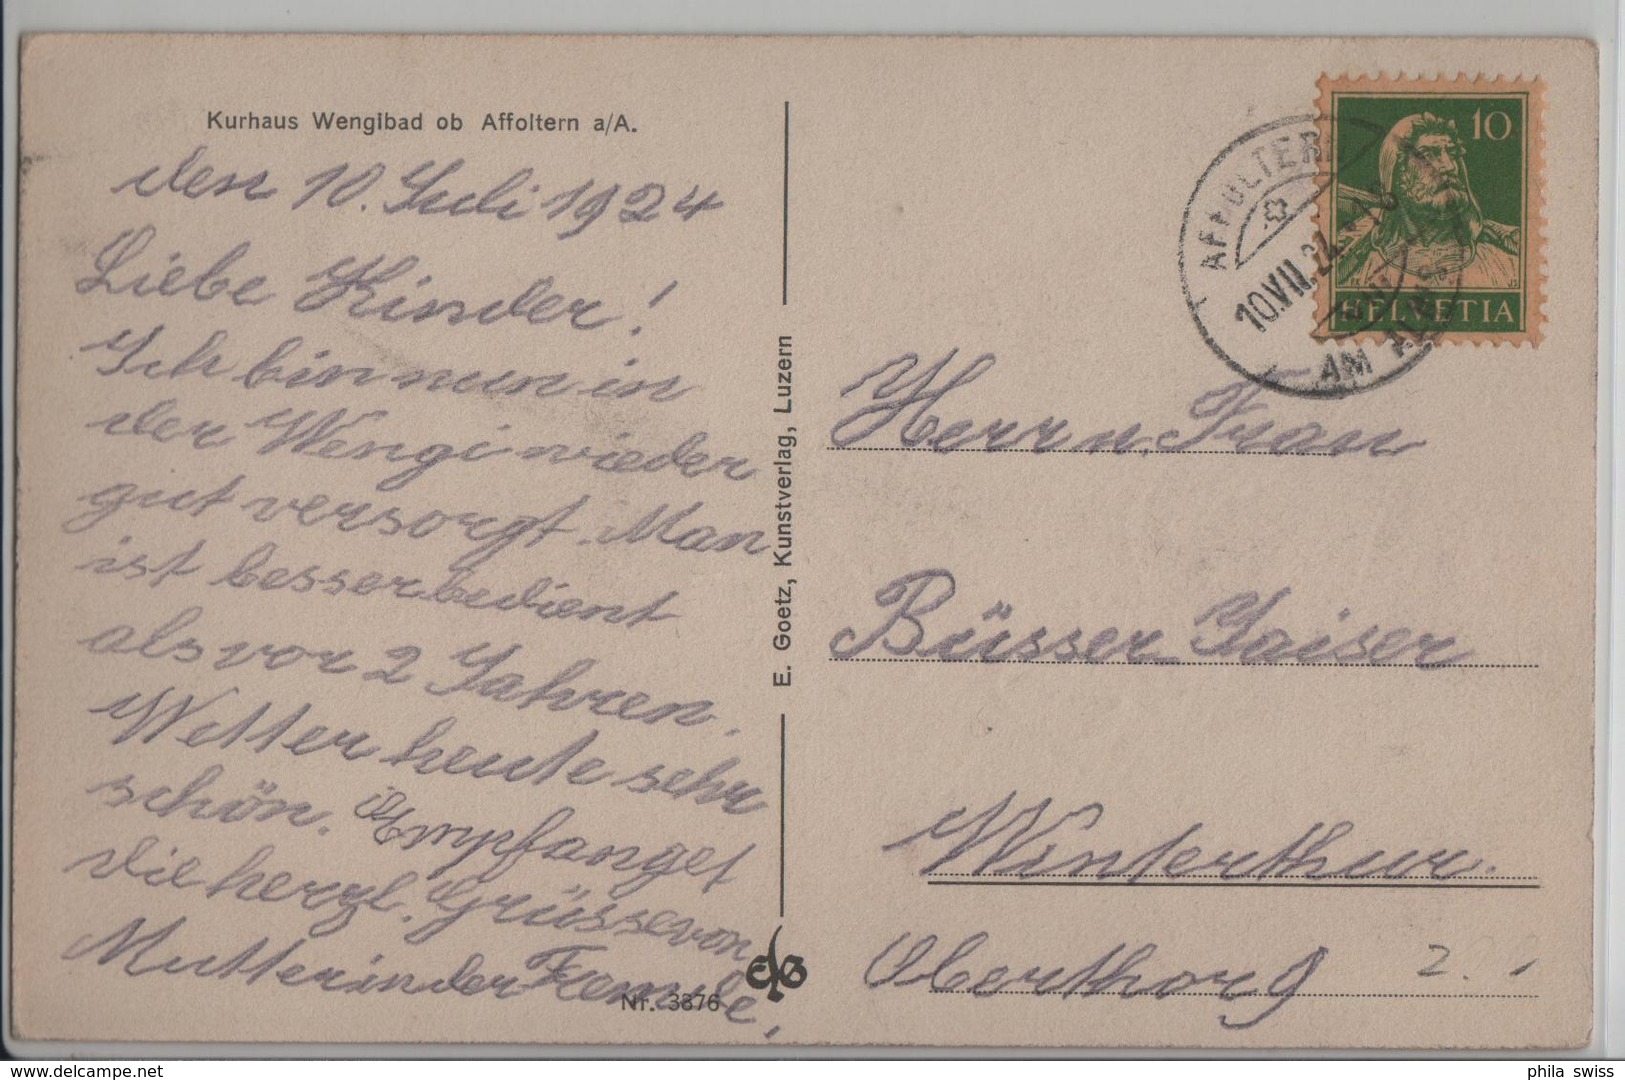 Kurhaus Wengibad ob Affoltern a/A.
den 10. Juli 1924
Liebe Kinder!
Ich bin nun in
der Wengi wieder
gut versorgt. Man
ist besser bedient
als vor 2 Jahren.
Wetter heute sehr
schön. Empfanget
die herzl. Grüsse von
Mutter in der Fremde.
Nr. 3876
E. Goetz, Kunstverlag, Luzern
10
HELVETIA
AFFOLTERN
10.VII.24
AM ALBIS
Herrn. Frau
Büsser Gaiser
Winterthur.
Oberthor 9
delcampe.net
phila swiss